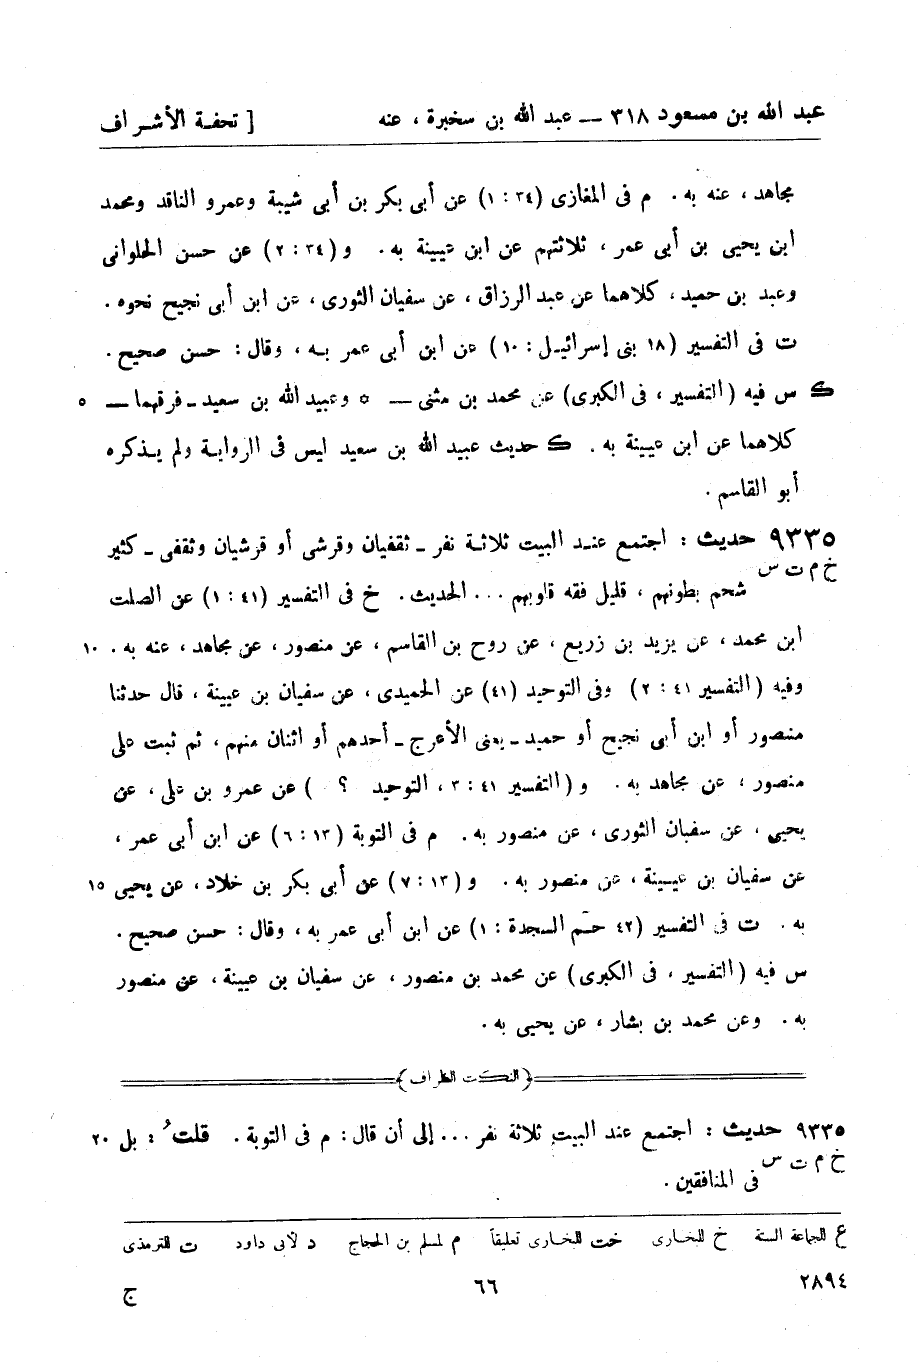 عبد الله بن مسعود ٣١٨ — عبد الله بن سخبرة ، عنه [ تحفة الأشراف
مجاهد ، عنه به . م فى المغازى (٣٤ : ١) عن أبى بكر بن أبى شيبة وعمرو الناقد ومحمد
ابن يحيى بن أبى عمر ، ثلاثتهم عن ابن عيينة به . و (٣٤ : ٢) عن حسن الحلوانى
وعبد بن حميد ، كلاهما عن عبد الرزاق ، عن سفيان الثورى ، عن ابن أبى نجيح نحوه .
ت فى التفسير (١٨ بنى إسرائيل : ١٠) عن ابن أبى عمر به ، وقال : حسن صحيح .
ك س فيه (التفسير ، فى الكبرى) عن محمد بن مثنى — * وعبيد الله بن سعيد ـ فرقهما — ٥
كلاهما عن ابن عيينة به . ك حديث عبيد الله بن سعيد ليس فى الرواية ولم يذكره
أبو القاسم .
٩٣٣٥ حديث : اجتمع عند البيت ثلاثة نفر ـ ثقفيان وقرشى أو قرشيان وثقفى ـ كثير
خ م ت س شحم بطونهم ، قليل فقه قلوبهم ... الحديث . خ فى التفسير (٤١ : ١) عن الصلت
ابن محمد ، عن يزيد بن زريع ، عن روح بن القاسم ، عن منصور ، عن مجاهد ، عنه به . ١٠
وفيه (التفسير ٤١ : ٢) وفى التوحيد (٤١) عن الحميدى ، عن سفيان بن عيينة ، قال حدثنا
منصور أو ابن أبى نجيح أو حميد ـ يعنى الأعرج ـ أحدهم أو اثنان منهم ، ثم ثبت على
منصور ، عن مجاهد به . و (التفسير ٤١ : ٣ ، التوحيد ؟ ) عن عمرو بن على ، عن
يحيى ، عن سفيان الثورى ، عن منصور به . م فى التوبة (١٣ : ٦) عن ابن أبى عمر ،
عن سفيان بن عيينة ، عن منصور به . و (١٣ : ٧) عن أبى بكر بن خلاد ، عن يحيى ١٥
به . ت فى التفسير (٤٢ حم السجدة : ١) عن ابن أبى عمر به ، وقال : حسن صحيح .
س فيه (التفسير ، فى الكبرى) عن محمد بن منصور ، عن سفيان بن عيينة ، عن منصور
به . وعن محمد بن بشار ، عن يحيى به .
(النكت الظراف)
٩٣٣٥ حديث : اجتمع عند البيت ثلاثة نفر ... إلى أن قال : م فى التوبة . قلتُ : بل ٢٠
خ م ت س فى المنافقين .
ع للجماعة الستة خ للبخارى خت للبخارى تعليقاً م لمسلم بن الحجاج د لأبى داود ت للترمذى
٢٨٩٤ ٦٦ ج